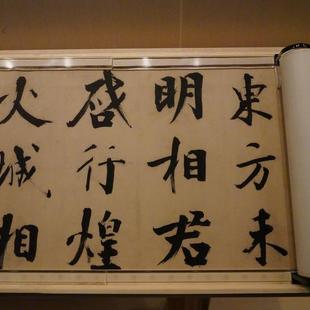 東方未
明相君
啓行煌
火城相